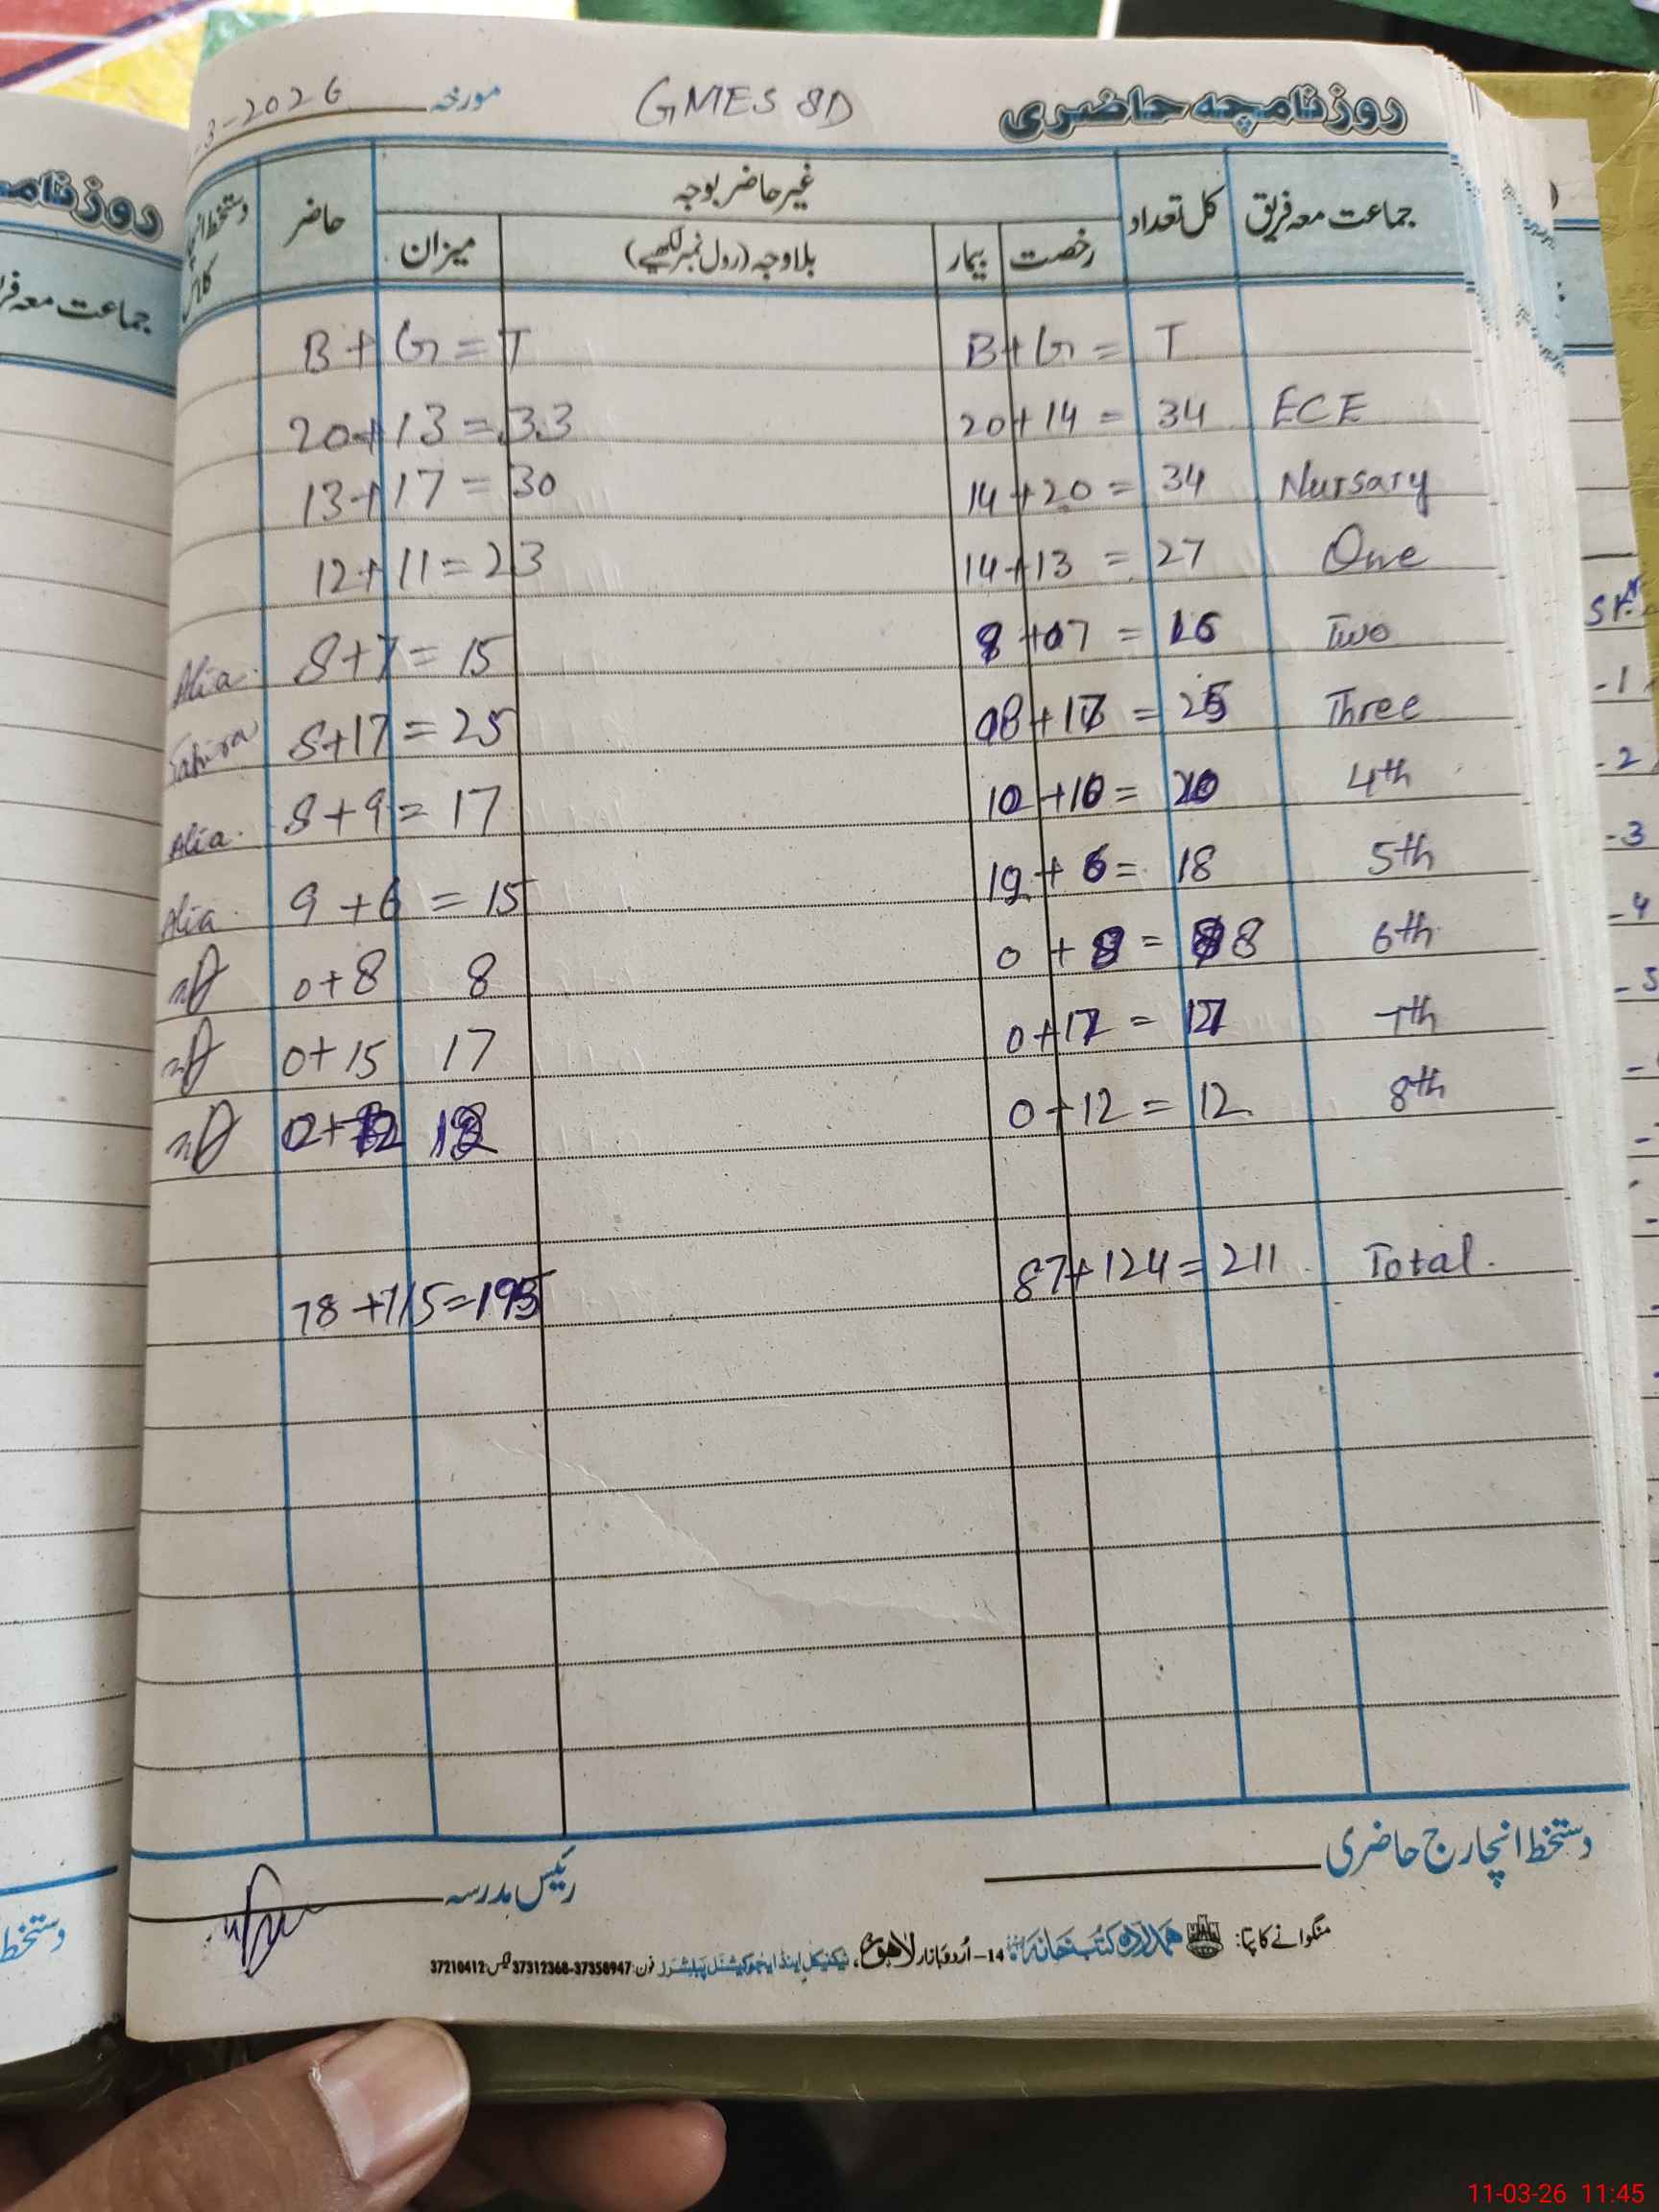 روزنامچہ حاضری GMES 8D مورخہ -3-2026
جماعت معہ فریق کل تعداد غیر حاضر بوجہ حاضر دستخط انچارج کلاس
رخصت بیمار بلاوجہ (رول نمبر لکھیے) میزان
B+G = T B+G = T
ECE 20+14 = 34 20+13 = 33
Nursary 14+20 = 34 13+17 = 30
One 14+13 = 27 12+11 = 23
Two 8+07 = 8+7 = 15 Alia
Three 8+17 = 25
4th 10+10 = 20 8+9 = 17 Alia
5th + 6 = 18 9+6 = 15 Alia
6th 0 + 8 = 8 0+8 8
7th 0+17 = 17 0+15 17
8th 0+12 = 12
Total. 87+124=211 78+115=
دستخط انچارج حاضری
رئیس مدرسہ
منگوانے کا پتا: ہمدرد کتب خانہ 14-اُردو بازار لاہور، ٹیکنیکل اینڈ ایجوکیشنل پبلشرز فون: 37312368-37358947 فیکس: 37210412
روزنامچہ
جماعت معہ فریق
دستخط
Sr.
-1
-2
-3
-4
-5
11-03-26 11:45